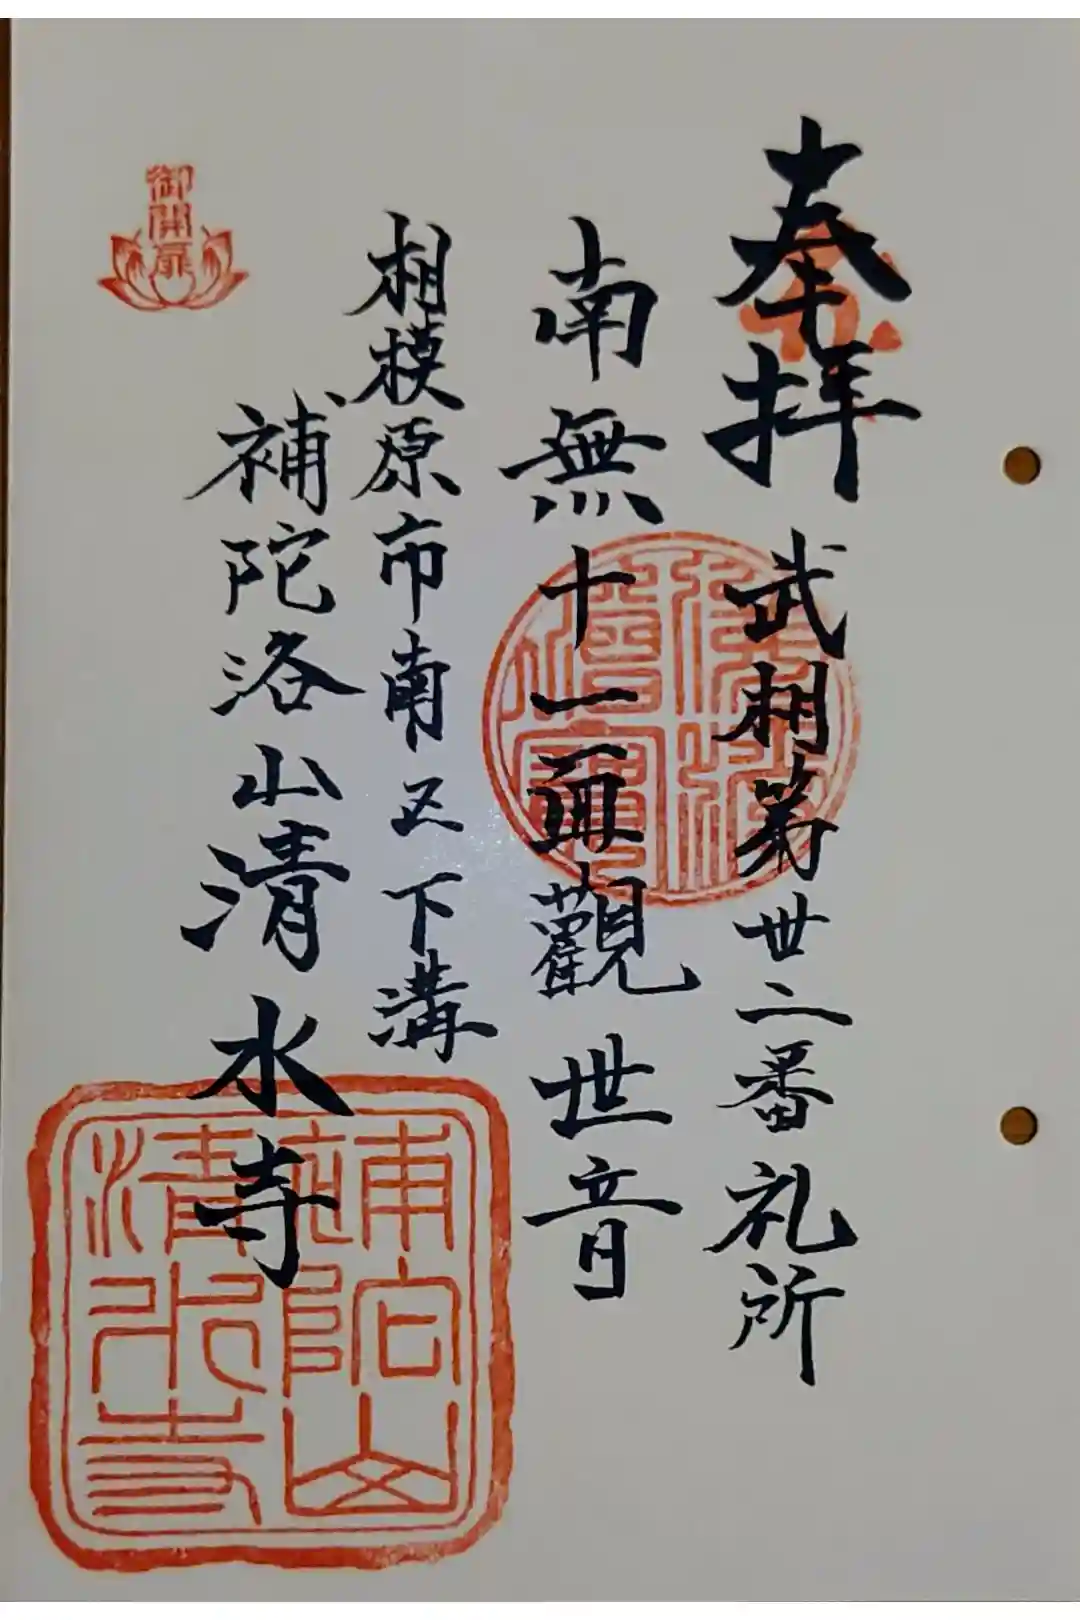 奉拝
武相第卅二番礼所
南無十一面觀世音
相模原市南区下溝
補陀洛山清水寺
御開扉
佛法僧寳
補陀洛山
清水寺